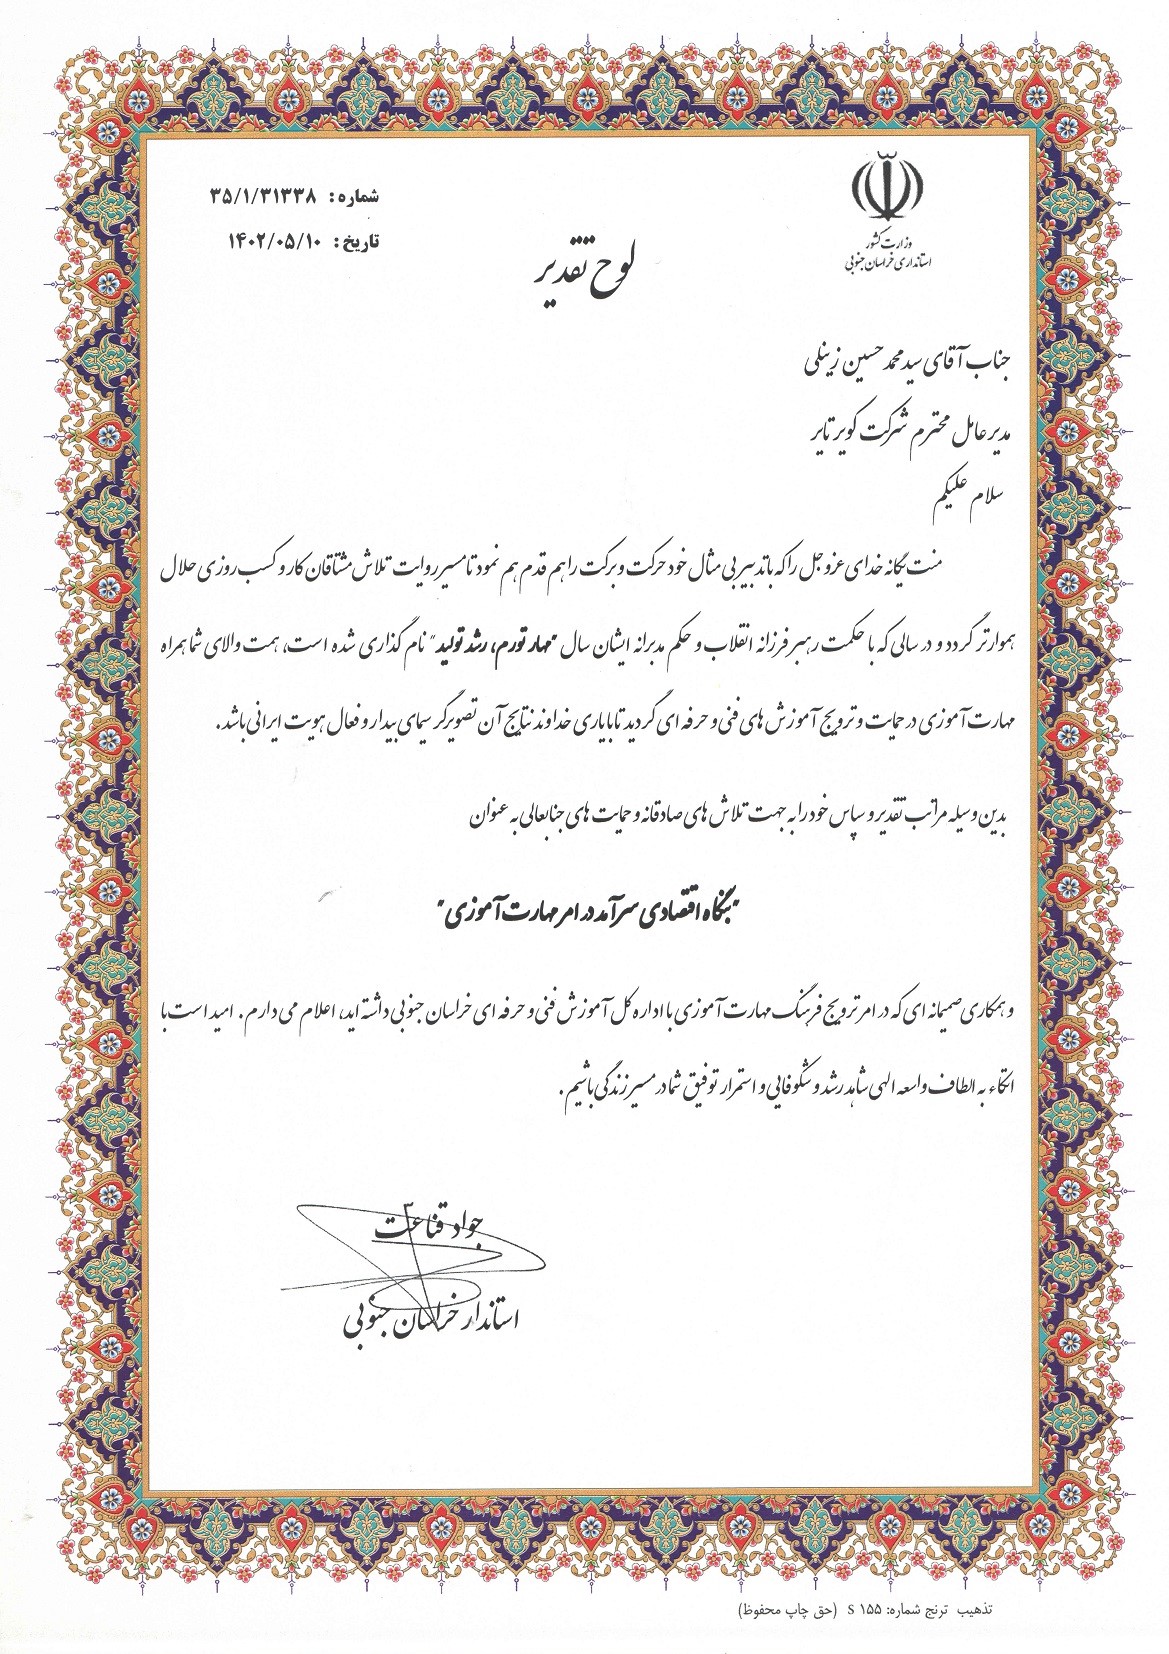 وزارت کشور
استانداری خراسان جنوبی
شماره : ۳۵/۱/۳۱۳۳۸
تاریخ : ۱۴۰۲/۰۵/۱۰
لوح تقدیر
جناب آقای سید محمد حسین زینلی
مدیر عامل محترم شرکت کویر تایر
سلام علیکم
منت یگانه خدای عزوجل را که با تدبیر بی مثال خود حرکت و برکت را هم قدم هم نمود تا مسیر روایت تلاش مشتاقان کار و کسب روزی حلال
هموارتر گردد و در سالی که با حکمت رهبر فرزانه انقلاب و حکم مدبرانه ایشان سال "مهار تورم، رشد تولید" نام گذاری شده است، همت والای شما همراه
مهارت آموزی در حمایت و ترویج آموزش های فنی و حرفه ای گردید تا با یاری خداوند نتایج آن تصویرگر سیمای بیدار و فعال هویت ایرانی باشد.
بدین وسیله مراتب تقدیر و سپاس خود را به جهت تلاش های صادقانه و حمایت های جنابعالی به عنوان
"بنگاه اقتصادی سرآمد در امر مهارت آموزی"
و همکاری صمیمانه ای که در امر ترویج فرهنگ مهارت آموزی با اداره کل آموزش فنی و حرفه ای خراسان جنوبی داشته اید، اعلام می دارم. امید است با
اتکاء به الطاف واسعه الهی شاهد رشد و شکوفایی و استمرار توفیق شما در مسیر زندگی باشیم.
جواد قناعت
استاندار خراسان جنوبی
تذهیب ترنج شماره: S ۱۵۵ (حق چاپ محفوظ)